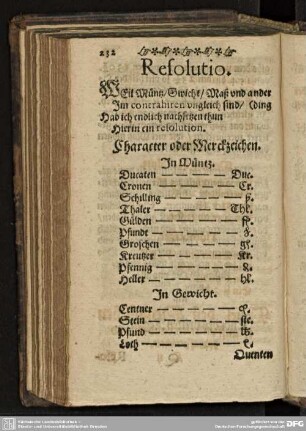 232
Resolutio.
WEil Müntz/ Gwicht/ Maß vnd ander
Im contrahiren vngleich sind/ (ding
Hab ich endlich nachsetzen thun
Hierin ein resolution.
Character oder Merckzeichen.
In Müntz.
Ducaten — — — — Duc.
Cronen — — — — — Cr.
Schilling — — — — — ß.
Thaler — — — — — Thl.
Gülden — — — — — fl.
Pfundt — — — — —
Groschen — — — — — gl.
Kreutzer — — — — — Kr.
Pfennig — — — — — ₰.
Heller — — — — — hl.
In Gewicht.
Centner — — — — —
Stein — — — — — ste.
Pfund — — — — — ℔.
Loth — — — — —
Quenten